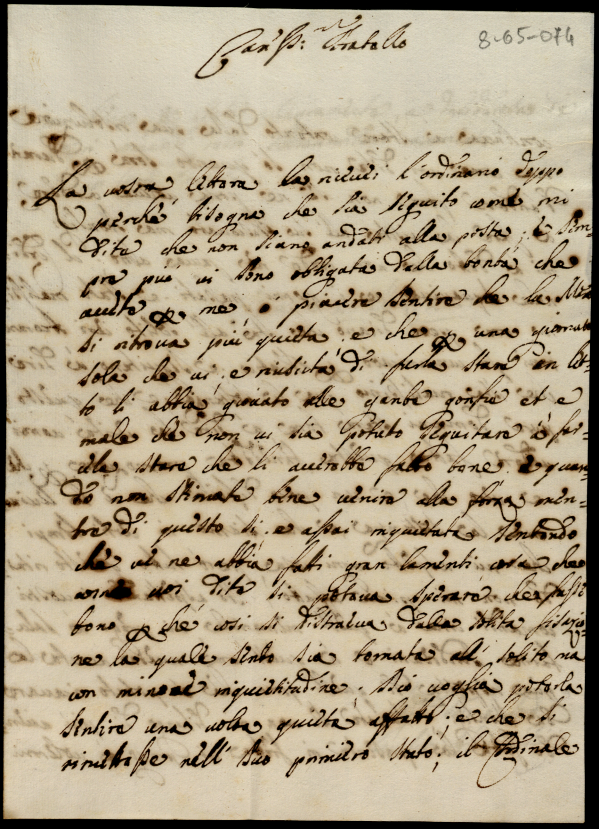 8-65-074
Car.mo Fratello
La vostra lettera la riceuei l'ordinario deppo
perche bisogna che sia seguito come mi
dite che non siano andati alla posta; e sem-
pre più vi sono obligata dalla bontà che
auete p me, ò piacere sentire che la
si ritroua più quieta, e che p una giornata
sola che vi e riuscita di farla stare in let-
to li abbia giouato alle ganbe gonfie et e
male che non vi sia potuto seguitare à far-
ela stare che li auerebbe fatto bene, e quan-
do non stimate bene uenire alla forza men-
tre di questo si e assai inquietata sentendo
che ue ne abbia fatti gran lamenti cosa che
come uoi dite si potaua sperare che fusse
bono p che cosi si distraeua dalla solita
ne la quale sento sia tornata al solito ma
con minore inquietitudine, Dio voglia poterla
sentire una uolta quieta affatto, e che si
rimettesse nell suo primiero stato; il Cardinale